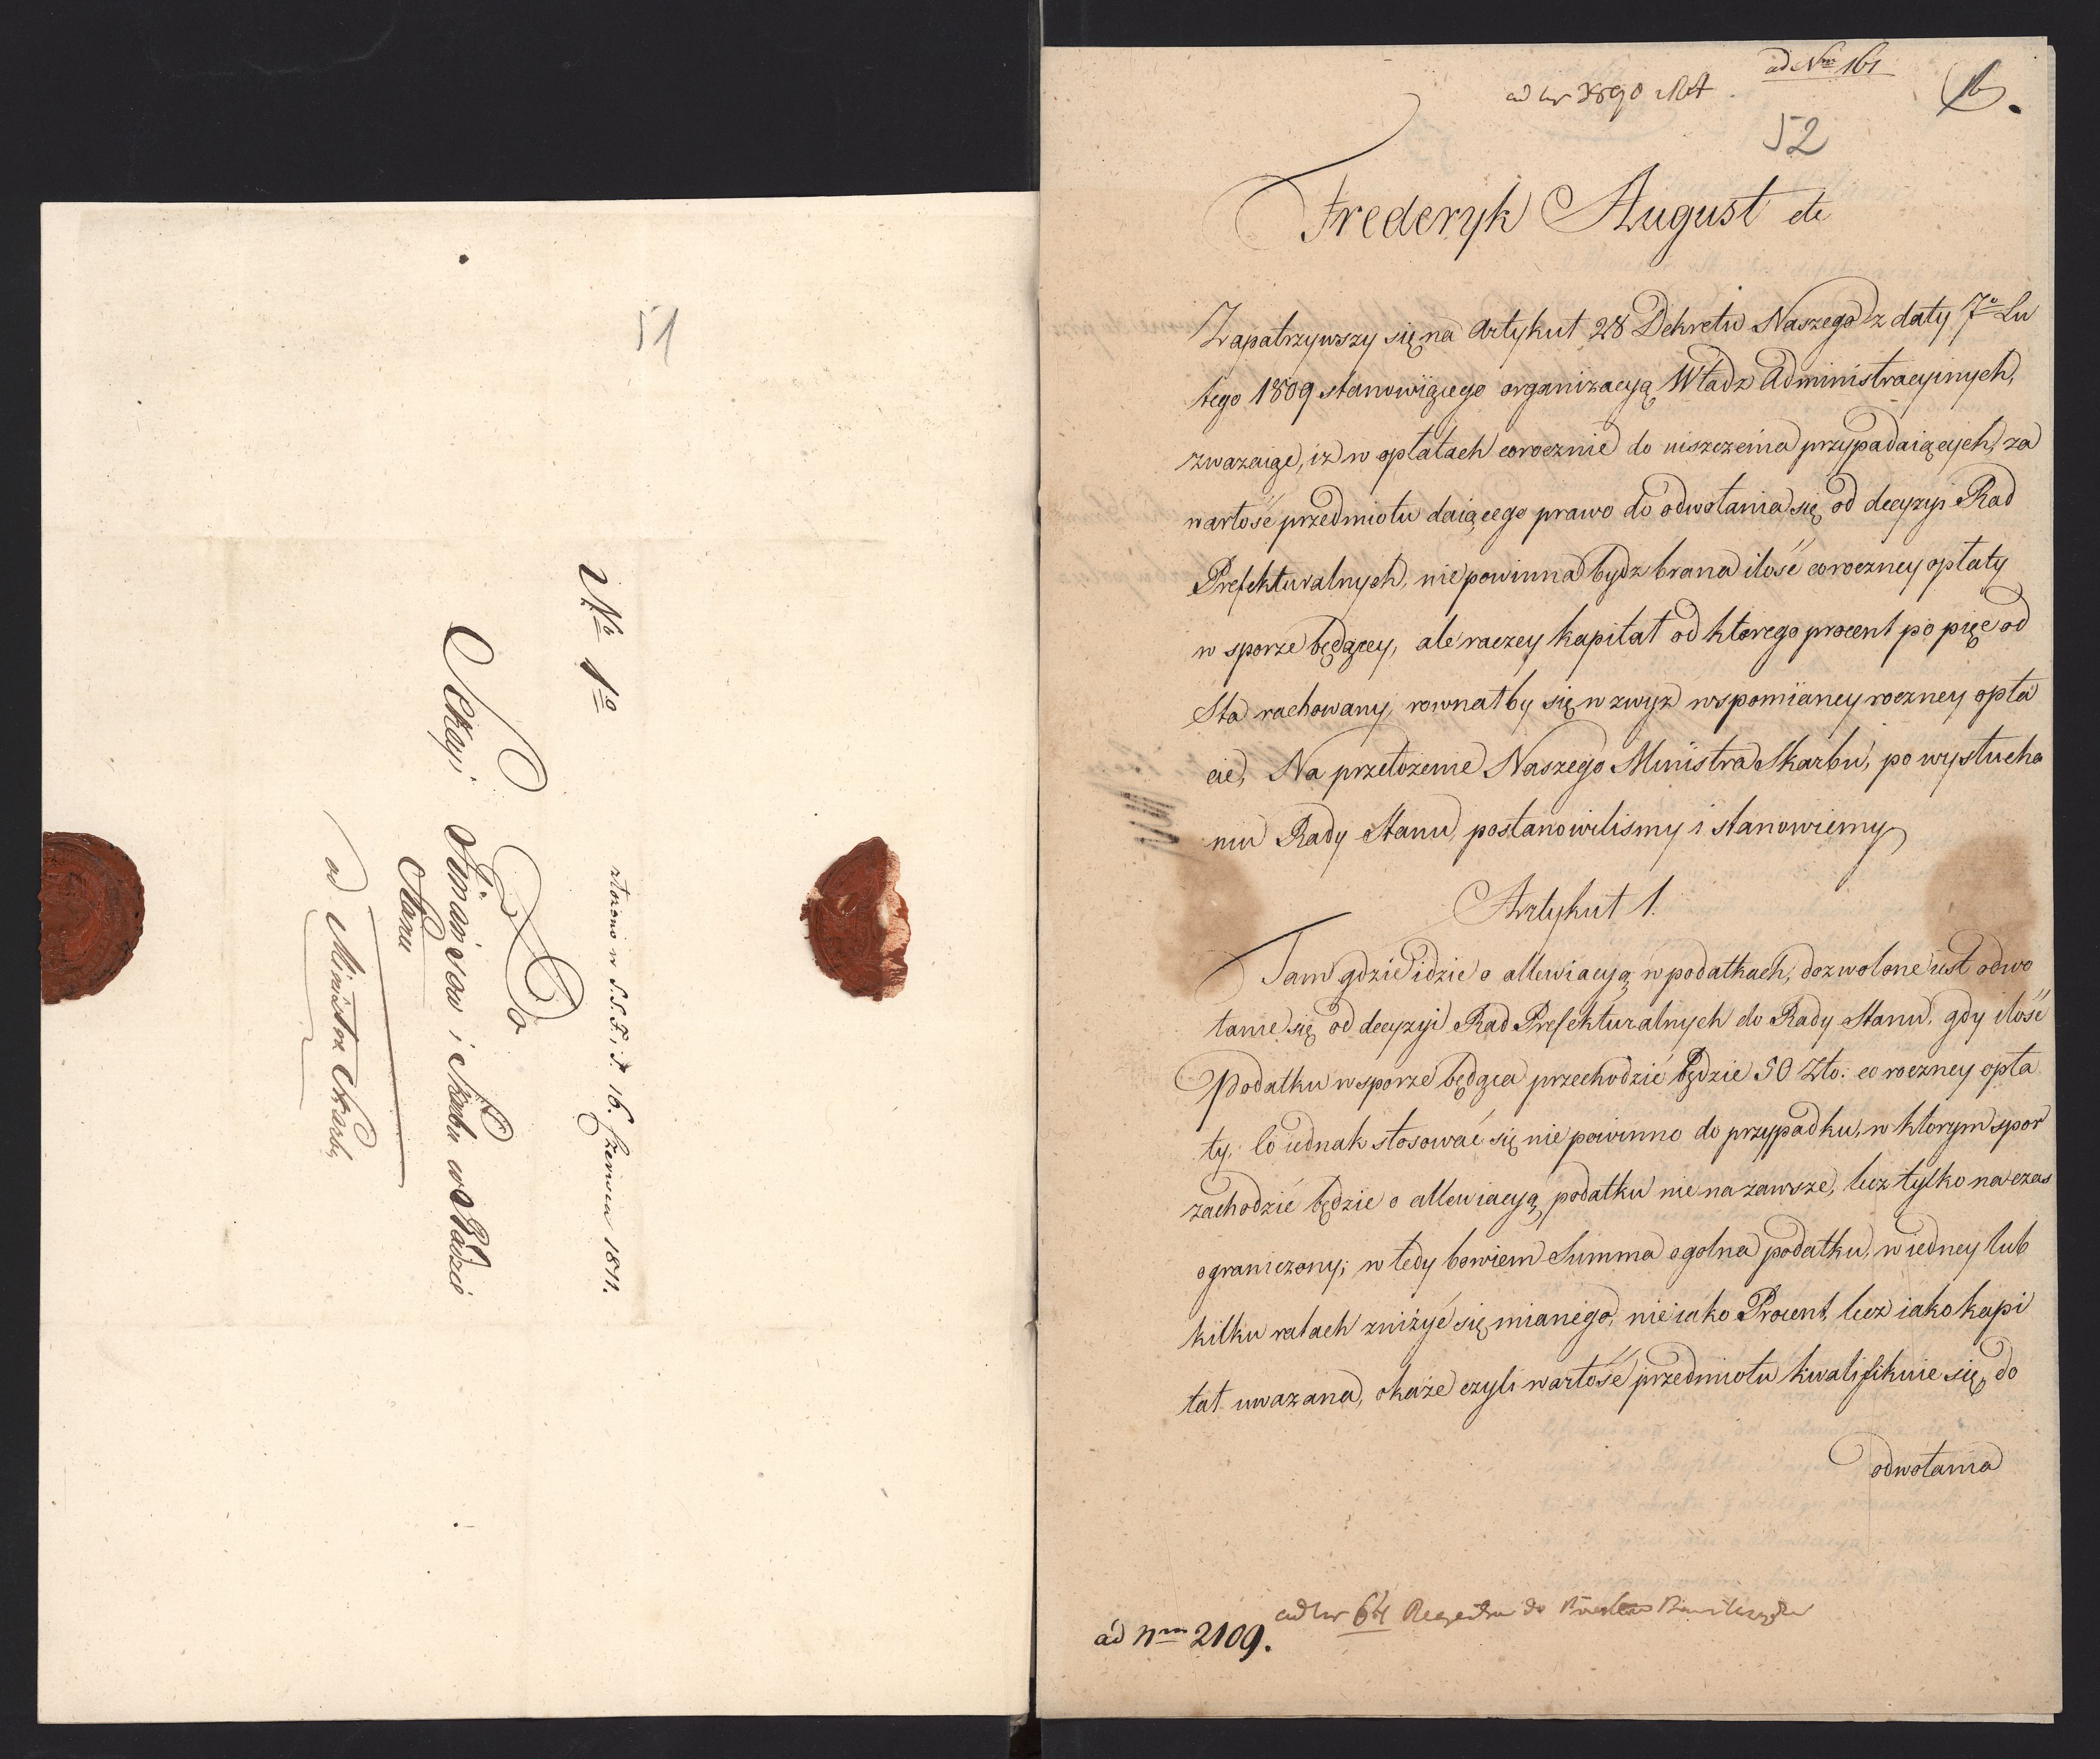 51
No 1o
złożono w S.S.F. i S. 16. Czerwca 1811.
Do
Sekcyi Finansow i Skarbu w Radzie
Stanu
od Ministra Skarbu
ad Nrm 161
ad Nr 3890 RA
52
Frederyk August etc
Zapatrzywszy się na Artykuł 28 Dekretu Naszego z daty 7o Lu
tego 1809 stanowiącego organizacyą Władz Administracyinych,
zwazaiąc, iz w opłatach corocznie do uiszczenia przypadaiących, za
wartość przedmiotu daiącego prawo do odwołania się od decyzyi Rad
Prefekturalnych, nie powinna bydz brana ilość coroczney opłaty
w sporze będącey, ale raczey kapitał od ktorego procent po pięć od
Sta rachowany, rownałby się w zwyz wspomianey roczney opła
cie, Na przełozenie Naszego Ministra Skarbu, po wysłucha
niu Rady Stanu, postanowilismy i stanowiemy
Artykuł 1.
Tam gdzie idzie o allewiacyą w podatkach, dozwolone iest odwo
łanie się od decyzyi Rad Prefekturalnych do Rady Stanu, gdy ilość
Podatku w sporze będąca przechodzić będzie 50 Zło: co roczney opła
ty, co iednak stosować się nie powinno do przypadku, w ktorym spor
zachodzić będzie o allewiacyą podatku nie na zawsze, lecz tylko na czas
ograniczony; w tedy bowiem Summa ogolna podatku, w iedney lub
kilku ratach zniżyć się mianego, nie iako Procent, lecz iako kapi
tał uwazana, okaże czyli wartość przedmiotu kwalifikuie się do
odwołania
ad Nr 64 do
ad Nrm 2109.